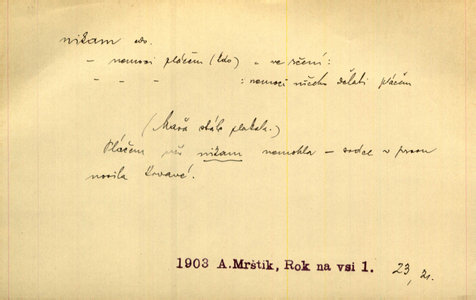 nikam adv.
- nemoci pláčem (kdo) - ve rčení:
- - - : nemoci ničeho dělati pláčem
(Mařa stále plakala.)
Pláčem už nikam nemohla – srdce v prsou
nosila krvavé.
1903 A.Mrštík, Rok na vsi 1. 23,